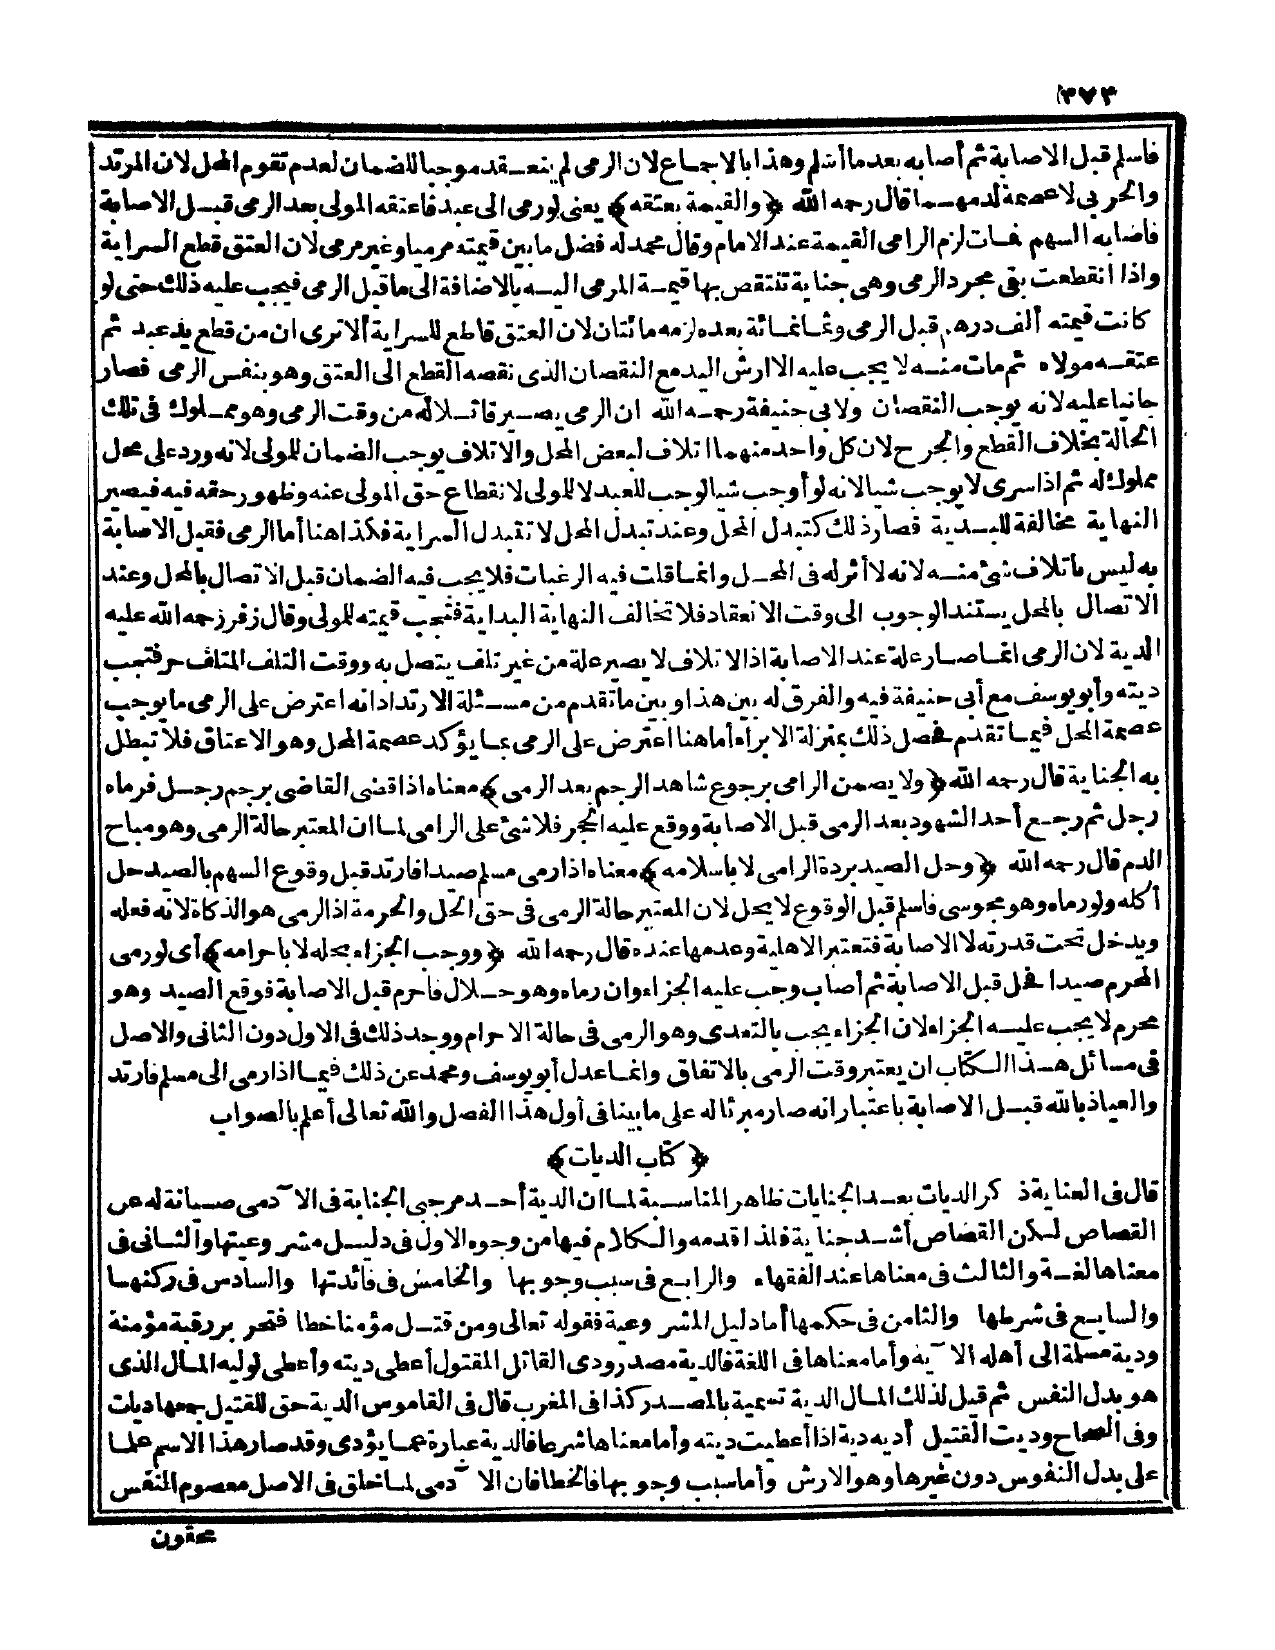 ٣٧٣
فاسلم قبل الاصابة ثم أصابه بعد ما أسلم وهذا بالاجماع لان الرمى لم ينعقد موجبا للضمان لعدم تقوم المحل لان المرتد
والحربى لا عصمة لدمهما قال رحمه الله ﴿والقيمة بعتقه﴾ يعنى لو رمى الى عبد فاعتقه المولى بعد الرمى قبل الاصابة
فاصابه السهم فمات لزم الرامى القيمة عند الامام وقال محمد له فضل ما بين قيمته مرميا وغير مرمى لان العتق قطع السراية
واذا انقطعت بقى مجرد الرمى وهى جناية تنتقص بها قيمة المرمى اليه بالاضافة الى ما قبل الرمى فيجب عليه ذلك حتى لو
كانت قيمته ألف درهم قبل الرمى وثمانمائة بعده لزمه مائتان لان العتق قاطع للسراية ألا ترى ان من قطع يد عبد ثم
عتقه مولاه ثم مات منه لا يجب عليه الا ارش اليد مع النقصان الذى نقصه القطع الى العتق وهو بنفس الرمى فصار
جانيا عليه لانه يوجب النقصان ولابى حنيفة رحمه الله ان الرمى يصير قاتلا له من وقت الرمى وهو مملوك فى تلك
الحالة بخلاف القطع والجرح لان كل واحد منهما اتلاف لبعض المحل والاتلاف يوجب الضمان للمولى لانه ورد على محل
مملوك له ثم اذا سرى لا يوجب شيا لانه لو أوجب شيا لوجب للعبد لا للمولى لانقطاع حق المولى عنه وظهور حقه فيه فيصير
النهاية مخالفة للبداية فصار ذلك كتبدل المحل وعند تبدل المحل لا تتبدل السراية فكذا هنا أما الرمى فقبل الاصابة
به ليس باتلاف شئ منه لانه لا أثر له فى المحل وانما قلت فيه الرغبات فلا يجب فيه الضمان قبل الاتصال بالمحل وعند
الاتصال بالمحل يستند الوجوب الى وقت الانعقاد فلا تخالف النهاية البداية فتجب قيمته للمولى وقال زفر رحمه الله عليه
الدية لان الرمى انما صار علة عند الاصابة اذ الاتلاف لا يصير علة من غير تلف يتصل به ووقت التلف المتلف حر فتجب
ديته وأبو يوسف مع أبى حنيفة فيه والفرق له بين هذا وبين ما تقدم من مسئلة الارتداد انه اعترض على الرمى ما يوجب
عصمة المحل فيما تقدم فحصل ذلك بمنزلة الابراء أما هنا اعترض على الرمى بما يؤكد عصمة المحل وهو الاعتاق فلا تبطل
به الجناية قال رحمه الله ﴿ولا يضمن الرامى برجوع شاهد الرجم بعد الرمى﴾ معناه اذا قضى القاضى برجم رجل فرماه
رجل ثم رجع أحد الشهود بعد الرمى قبل الاصابة ووقع عليه الحجر فلا شئ على الرامى لما ان المعتبر حالة الرمى وهو مباح
الدم قال رحمه الله ﴿وحل الصيد بردة الرامى لا باسلامه﴾ معناه اذا رمى مسلم صيدا فارتد قبل وقوع السهم بالصيد حل
أكله ولو رماه وهو مجوسى فاسلم قبل الوقوع لا يحل لان المعتبر حالة الرمى فى حق الحل والحرمة اذ الرمى هو الذكاة لانه فعله
ويدخل تحت قدرته لا الاصابة فتعتبر الاهلية وعدمها عنده قال رحمه الله ﴿ووجب الجزاء بحله لا باحرامه﴾ أى لو رمى
المحرم صيدا فحل قبل الاصابة ثم أصاب وجب عليه الجزاء وان رماه وهو حلال فأحرم قبل الاصابة فوقع الصيد وهو
محرم لا يجب عليه الجزاء لان الجزاء يجب بالتعدى وهو الرمى فى حالة الاحرام ووجد ذلك فى الاول دون الثانى والاصل
فى مسائل هذا الكتاب ان يعتبر وقت الرمى بالاتفاق وانما عدل أبو يوسف ومحمد عن ذلك فيما اذا رمى الى مسلم فارتد
والعياذ بالله قبل الاصابة باعتبار انه صار مبرئا له على ما بينا فى أول هذا الفصل والله تعالى أعلم بالصواب
﴿كتاب الديات﴾
قال فى العناية ذكر الديات بعد الجنايات ظاهر المناسبة لما ان الدية أحد مرجى الجناية فى الآدمى صيانة له عن
القصاص لكن القصاص أشد جناية فلذا قدمه والكلام فيها من وجوه الاول فى دليل مشروعيتها والثانى فى
معناها لغة والثالث فى معناها عند الفقهاء والرابع فى سبب وجوبها والخامس فى فائدتها والسادس فى ركنها
والسابع فى شرطها والثامن فى حكمها أما دليل المشروعية فقوله تعالى ومن قتل مؤمنا خطا فتحرير رقبة مؤمنة
ودية مسلمة الى أهله الآية وأما معناها فى اللغة فالدية مصدر ودى القاتل المقتول أعطى ديته وأعطى لوليه المال الذى
هو بدل النفس ثم قيل لذلك المال الدية تسمية بالمصدر كذا فى المغرب قال فى القاموس الدية حق للقتيل جمعها ديات
وفى الصحاح وديت القتيل أديه دية اذا أعطيت ديته وأما معناها شرطا فالدية عبارة عما يؤدى وقد صار هذا الاسم علما
على بدل النفوس دون غيرها وهو الارش وأما سبب وجوبها فالخطا فان الآدمى لما خلق فى الاصل معصوم النفس
محقون